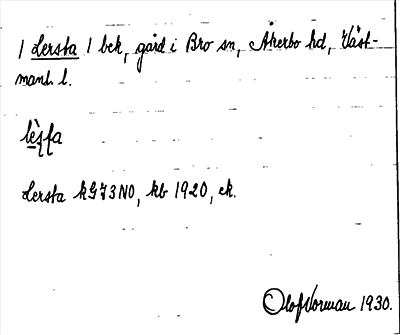 1 Lersta 1 bek, gård i Bro sn, Åkerbo hd, Väst-
manl. l.
Lersta kG73N0, kb 1920, ek.
Olof Norman 1930.